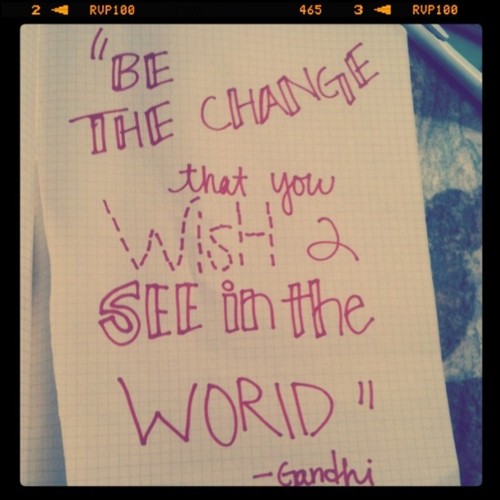 2 RVP100 465 3 RVP100
"BE
THE CHANGE
that you
WisH 2
SEE in the
WORlD"
-Gandhi